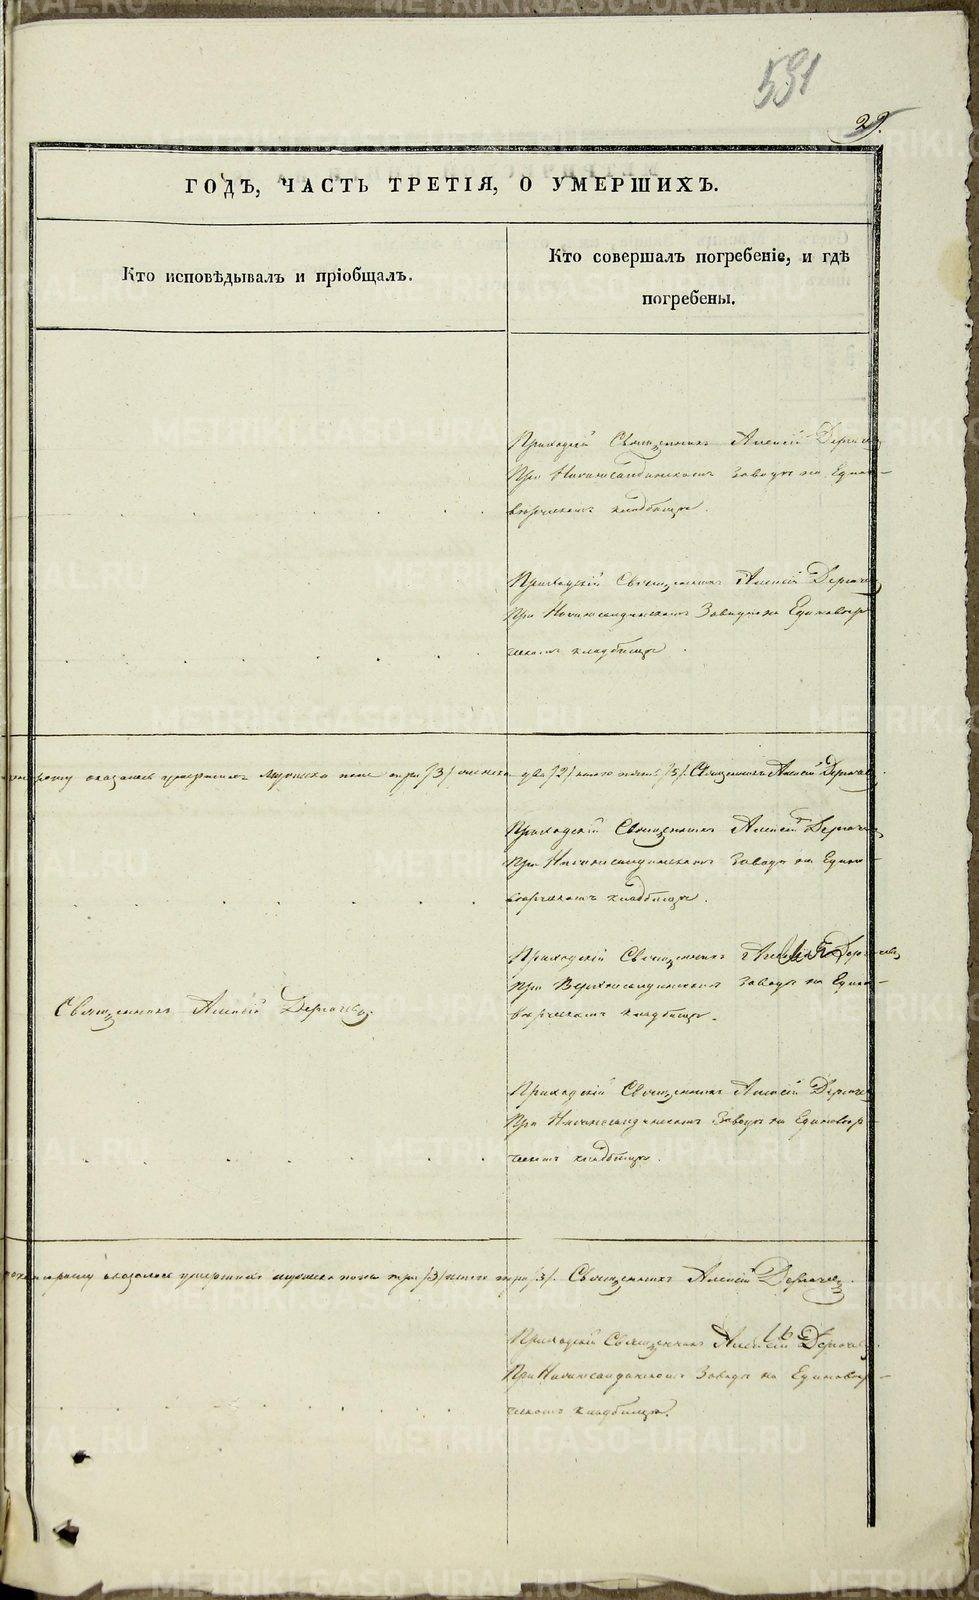 591
29.
ГОДЪ, ЧАСТЬ ТРЕТІЯ, О УМЕРШИХЪ.
Кто исповѣдывалъ и пріобщалъ.
Кто совершалъ погребеніе, и гдѣ
погребены.
Приходскій Священникъ Алексій Дергачевъ
при Нижнесалдинскомъ Заводѣ на Едино-
вѣрческомъ кладбищѣ.
Приходскій Священникъ Алексій Дергачевъ
при Нижнесалдинскомъ Заводѣ на Едиовѣр
ческомъ кладбищѣ.
оказалось умершихъ мужеска пола три /3/ женска два /2/ всего пять /5/. Священникъ Алексій Дергачевъ.
Приходскій Священникъ Алексій Дергачевъ
при Нижнесалдинскомъ Заводѣ на Едино-
вѣрческомъ кладбищѣ.
Приходскій Священникъ Алексій Дергачевъ
при Верхнесалдинскомъ Заводѣ на Едино-
вѣрческомъ кладбищѣ.
Священникъ Алексій Дергачевъ.
Приходскій Священникъ Алексій Дергачевъ
при Нижнесалдинскомъ Заводѣ на Единовѣр-
ческомъ кладбищѣ.
оказалось умершихъ мужеска пола три /3/ всего три /3/. Священникъ Алексій Дергачевъ.
Приходскій Священникъ Алексій Дергачевъ.
При Нижнесалдинскомъ Заводѣ на Единовѣр-
ческомъ кладбищѣ.
METRIKI.GASO-URAL.RU